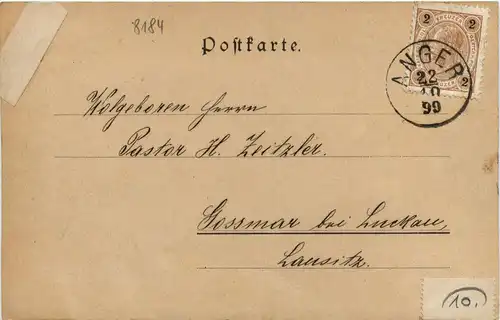 8184
Postkarte.
2 KREUZER 2
ANGER
22
10
99
2
Wolgeboren Herrn
Pastor H. Zeitzler.
Gossmar bei Luckau,
Lausitz.
10.